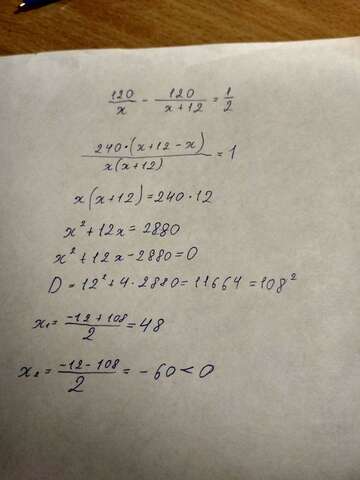 120/x - 120/(x+12) = 1/2
240·(x+12-x)/x(x+12) = 1
x(x+12)=240·12
x²+12x=2880
x²+12x-2880=0
D=12²+4·2880=11664=108²
x₁=(-12+108)/2=48
x₂=(-12-108)/2=-60<0